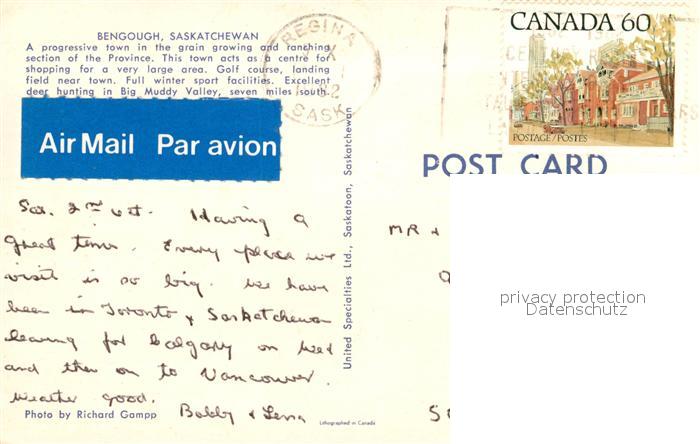 BENGOUGH, SASKATCHEWAN
A progressive town in the grain growing and ranching
section of the Province. This town acts as a centre for
shopping for a very large area. Golf course, landing
field near town. Full winter sport facilities. Excellent
deer hunting in Big Muddy Valley, seven miles south.
REGINA
SASK
CANADA 60
POSTAGE/POSTES
Air Mail Par avion
POST CARD
Sat. 2nd Oct. Having a
great time. Every place we
visit is so big. We have
been in Toronto & Saskatchewan
leaving for Calgary on Wed
and then on to Vancouver.
Weather good.
Bobby &
Photo by Richard Gampp
Lithographed in Canada
United Specialties Ltd., Saskatoon, Saskatchewan
MR &
privacy protection
Datenschutz